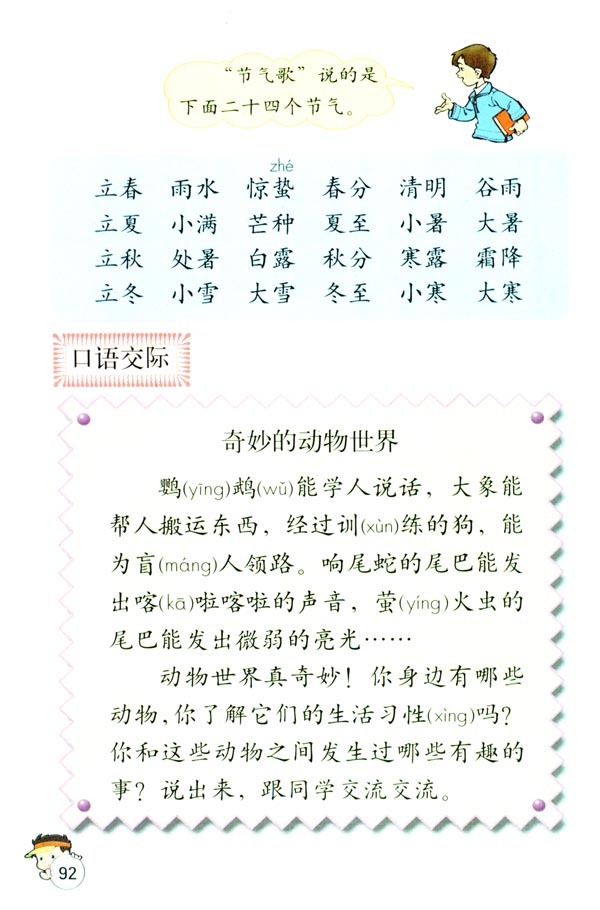 “节气歌”说的是
下面二十四个节气。
zhé
立春 雨水 惊蛰 春分 清明 谷雨
立夏 小满 芒种 夏至 小暑 大暑
立秋 处暑 白露 秋分 寒露 霜降
立冬 小雪 大雪 冬至 小寒 大寒
口语交际
奇妙的动物世界
鹦(yīng)鹉(wǔ)能学人说话，大象能
帮人搬运东西，经过训(xùn)练的狗，能
为盲(máng)人领路。响尾蛇的尾巴能发
出喀(kā)啦喀啦的声音，萤(yíng)火虫的
尾巴能发出微弱的亮光……
动物世界真奇妙！你身边有哪些
动物，你了解它们的生活习性(xìng)吗？
你和这些动物之间发生过哪些有趣的
事？说出来，跟同学交流交流。
92